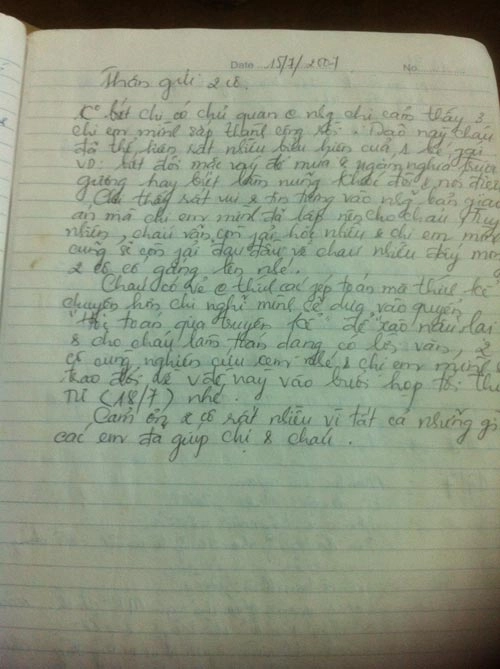 Date 15/7/2007 No.
Thân gửi 2 cô.
Ko biết chị có chủ quan o nhg chị cảm thấy 3
chị em mình sắp thành công rồi. Dạo này cháu
đã thể hiện rất nhiều biểu hiện của 1 bé gái
VD: bắt đầu mặc váy để múa & ngắm nghía trước
gương hay biết làm nũng khóc dỗi & nói điệu
Chị thấy rất vui & tin tưởng vào nhg bản giáo
án mà chị em mình đã lập nên cho cháu. Tuy
nhiên, cháu vẫn còn fải học nhiều & chị em mình
cũng sẽ còn fải đau đầu về cháu nhiều đấy mong
2 cô cố gắng lên nhé.
Cháu có vẻ o thích các fép toán mà thích kể
chuyện hơn chị nghĩ mình sẽ dựa vào quyển
"Học toán qua truyện kể" để xào nấu lại
& cho cháu làm toán dạng có lời văn, 2
cô cùng nghiên cứu xem nhé & chị em mình sẽ
trao đổi về vđề này vào buổi họp tới thứ
Tư (18/7) nhé.
Cảm ơn 2 cô rất nhiều vì tất cả những gì
các em đã giúp chị & cháu.